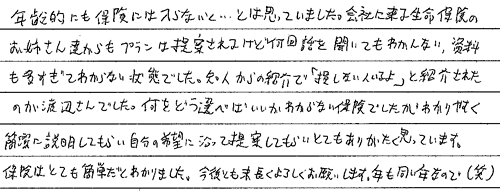 年齢的にも保険には入らないと…とは思っていました。会社に来る生命保険の
お姉さん達からもプランは提案されるけど何回話を聞いてもわかんない、資料
も多すぎてわからない状態でした。知人からの紹介で「損しない人いるよ」と紹介された
のが渡辺さんでした。何をどう選べばいいかわからない保険でしたがわかりやすく
簡密に説明してもらい自分の希望に沿って提案してもらいとてもありがたく思っています。
保険はとても簡単だとわかりました。今後とも末長くよろしくお願いします。年も同い年なので(笑)